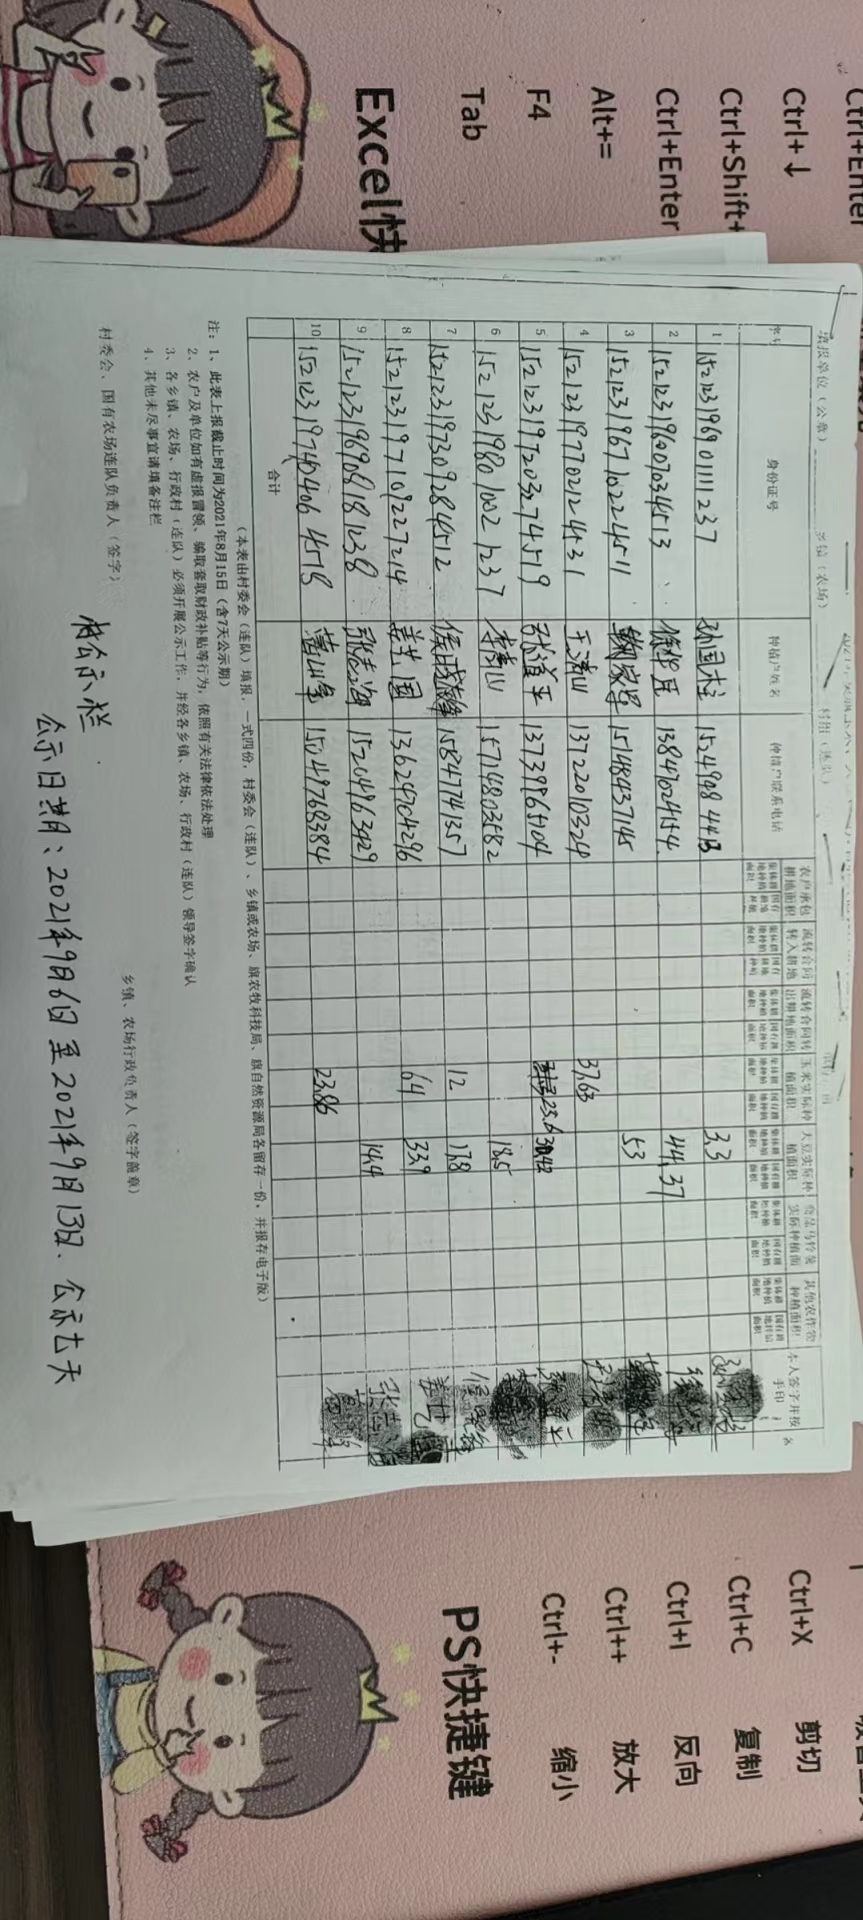 Excel快
Tab
F4
Alt+=
Ctrl+Enter
Ctrl+Shift+
Ctrl+↓
Ctrl+Enter
填报单位（公章） 乡镇（农场） 村组（连队）
序号 身份证号 种植户姓名 种植户联系电话 农户承包耕地面积 流转合同转入耕地 流转合同转出耕地面积 玉米实际种植面积 大豆实际种植面积 商品马铃薯实际种植面 其他农作物种植面积 本人签字并按手印
1 152123196901111237 孙国柱 3.3
2 152123196007034513 徐华臣 13847024154 44.37
3 152123196710224511 15148437145 53
4 152123197702124531 于清山 13722010324 37.63
5 152123197203274519 张道平 13739965104 23.6 30.42
6 152123198010021237 李春山 15714803582 18.5
7 152123197309284512 15847741357 12 17.8
8 152123197109227214 姜艺国 13624704296 64 33.9
9 152123196908181238 张志海 15204963429 14.4
10 152123197404064518 15049768384 23.86
合计
（本表由村委会（连队）填报，一式四份，村委会（连队）、乡镇或农场、旗农牧科技局、旗自然资源局各留存一份，并报存电子版）
注：1、此表上报截止时间为2021年8月15日（含7天公示期）
2、农户及单位如有虚报冒领、骗取套取财政补贴等行为，依照有关法律依法处理
3、各乡镇、农场、行政村（连队）必须开展公示工作，并经各乡镇、农场、行政村（连队）领导签字确认
4、其他未尽事宜请填备注栏
村委会、国有农场连队负责人（签字） 乡镇、农场行政负责人（签字盖章）
村公示栏
公示日期：2021年9月6日至2021年9月13日、公示七天
PS快捷键
Ctrl+- 缩小
Ctrl++ 放大
Ctrl+I 反向
Ctrl+C 复制
Ctrl+X 剪切